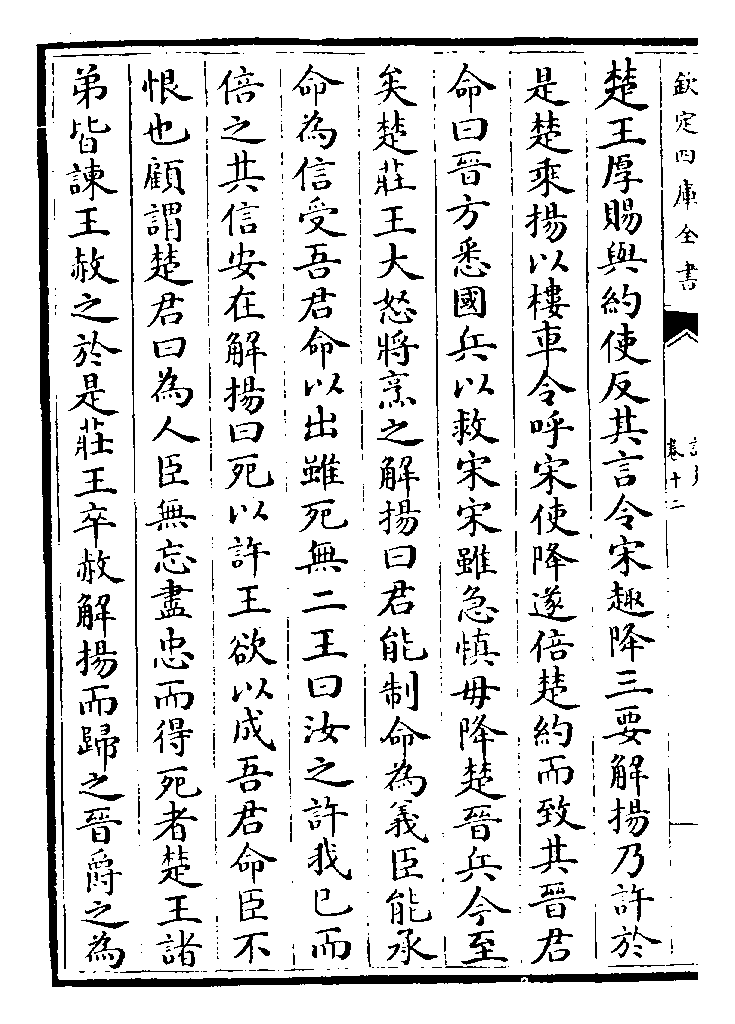 欽定四庫全書
卷十二
楚王厚賜與約使反其言令宋趣降三要解揚乃許於
是楚乘揚以樓車令呼宋使降遂倍楚約而致其晉君
命曰晉方悉國兵以救宋宋雖急慎毋降楚晉兵今至
矣楚莊王大怒將烹之解揚曰君能制命為義臣能承
命為信受吾君命以出雖死無二王曰汝之許我已而
倍之其信安在解揚曰死以許王欲以成吾君命臣不
恨也顧謂楚君曰為人臣無忘盡忠而得死者楚王諸
弟皆諫王赦之於是莊王卒赦解揚而歸之晉爵之為